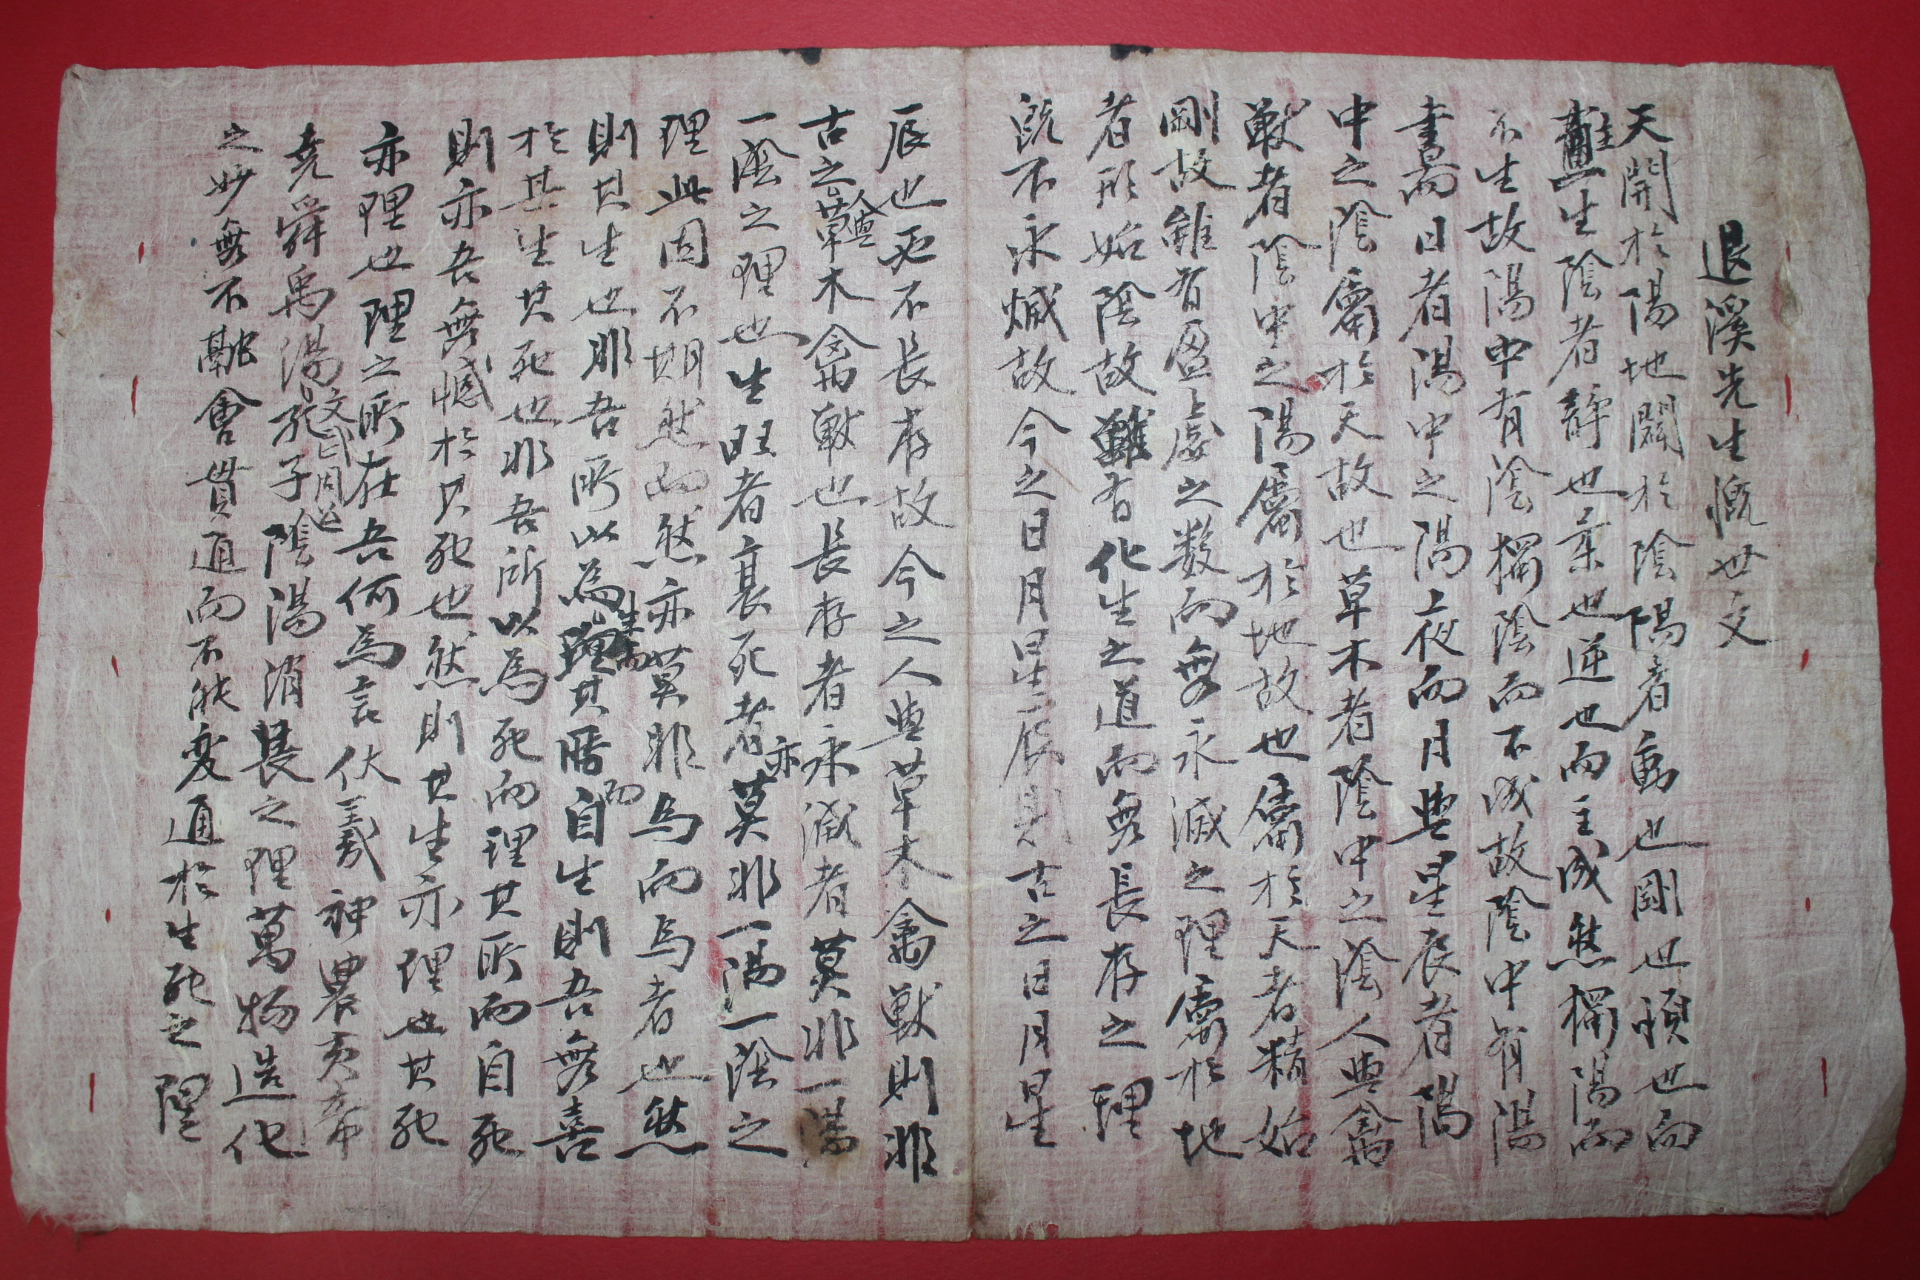 退溪先生慨世文
天開於陽地闢於陰陽者動也剛也順也而
主生陰者靜也柔也逆也而主成然獨陽而
不生故陽中有陰獨陰而不成故陰中有陽
晝而日者陽中之陽夜而月與星辰者陽
中之陰屬於天故也草木者陰中之陰人與禽
獸者陰中之陽屬於地故也屬於天者精始
剛故雖有盈虛之数而無永滅之理屬於地
者形始陰故雖有化生之道而無長存之理
既不永滅故今之日月星辰則古之日月星
辰也死不長存故今之人與草木禽獸則非
古之人與草木禽獸也長存者永滅者莫非一陽
一陰之理也生旺者衰死者亦莫非一陽一陰之
理此固不期然而然亦莫非為而為者也然
則其生也非吾所以為生而理其所而自生則吾無喜
於其生其死也非吾所以為死而理其所而自死
則亦吾無憾於其死也然則其生亦理也其死
亦理也理之所在吾何為言伏羲神農黃帝
堯舜禹湯文武周公孔子陰陽消長之理萬物造化
之妙無不融會貫通而不能変通於生死之理